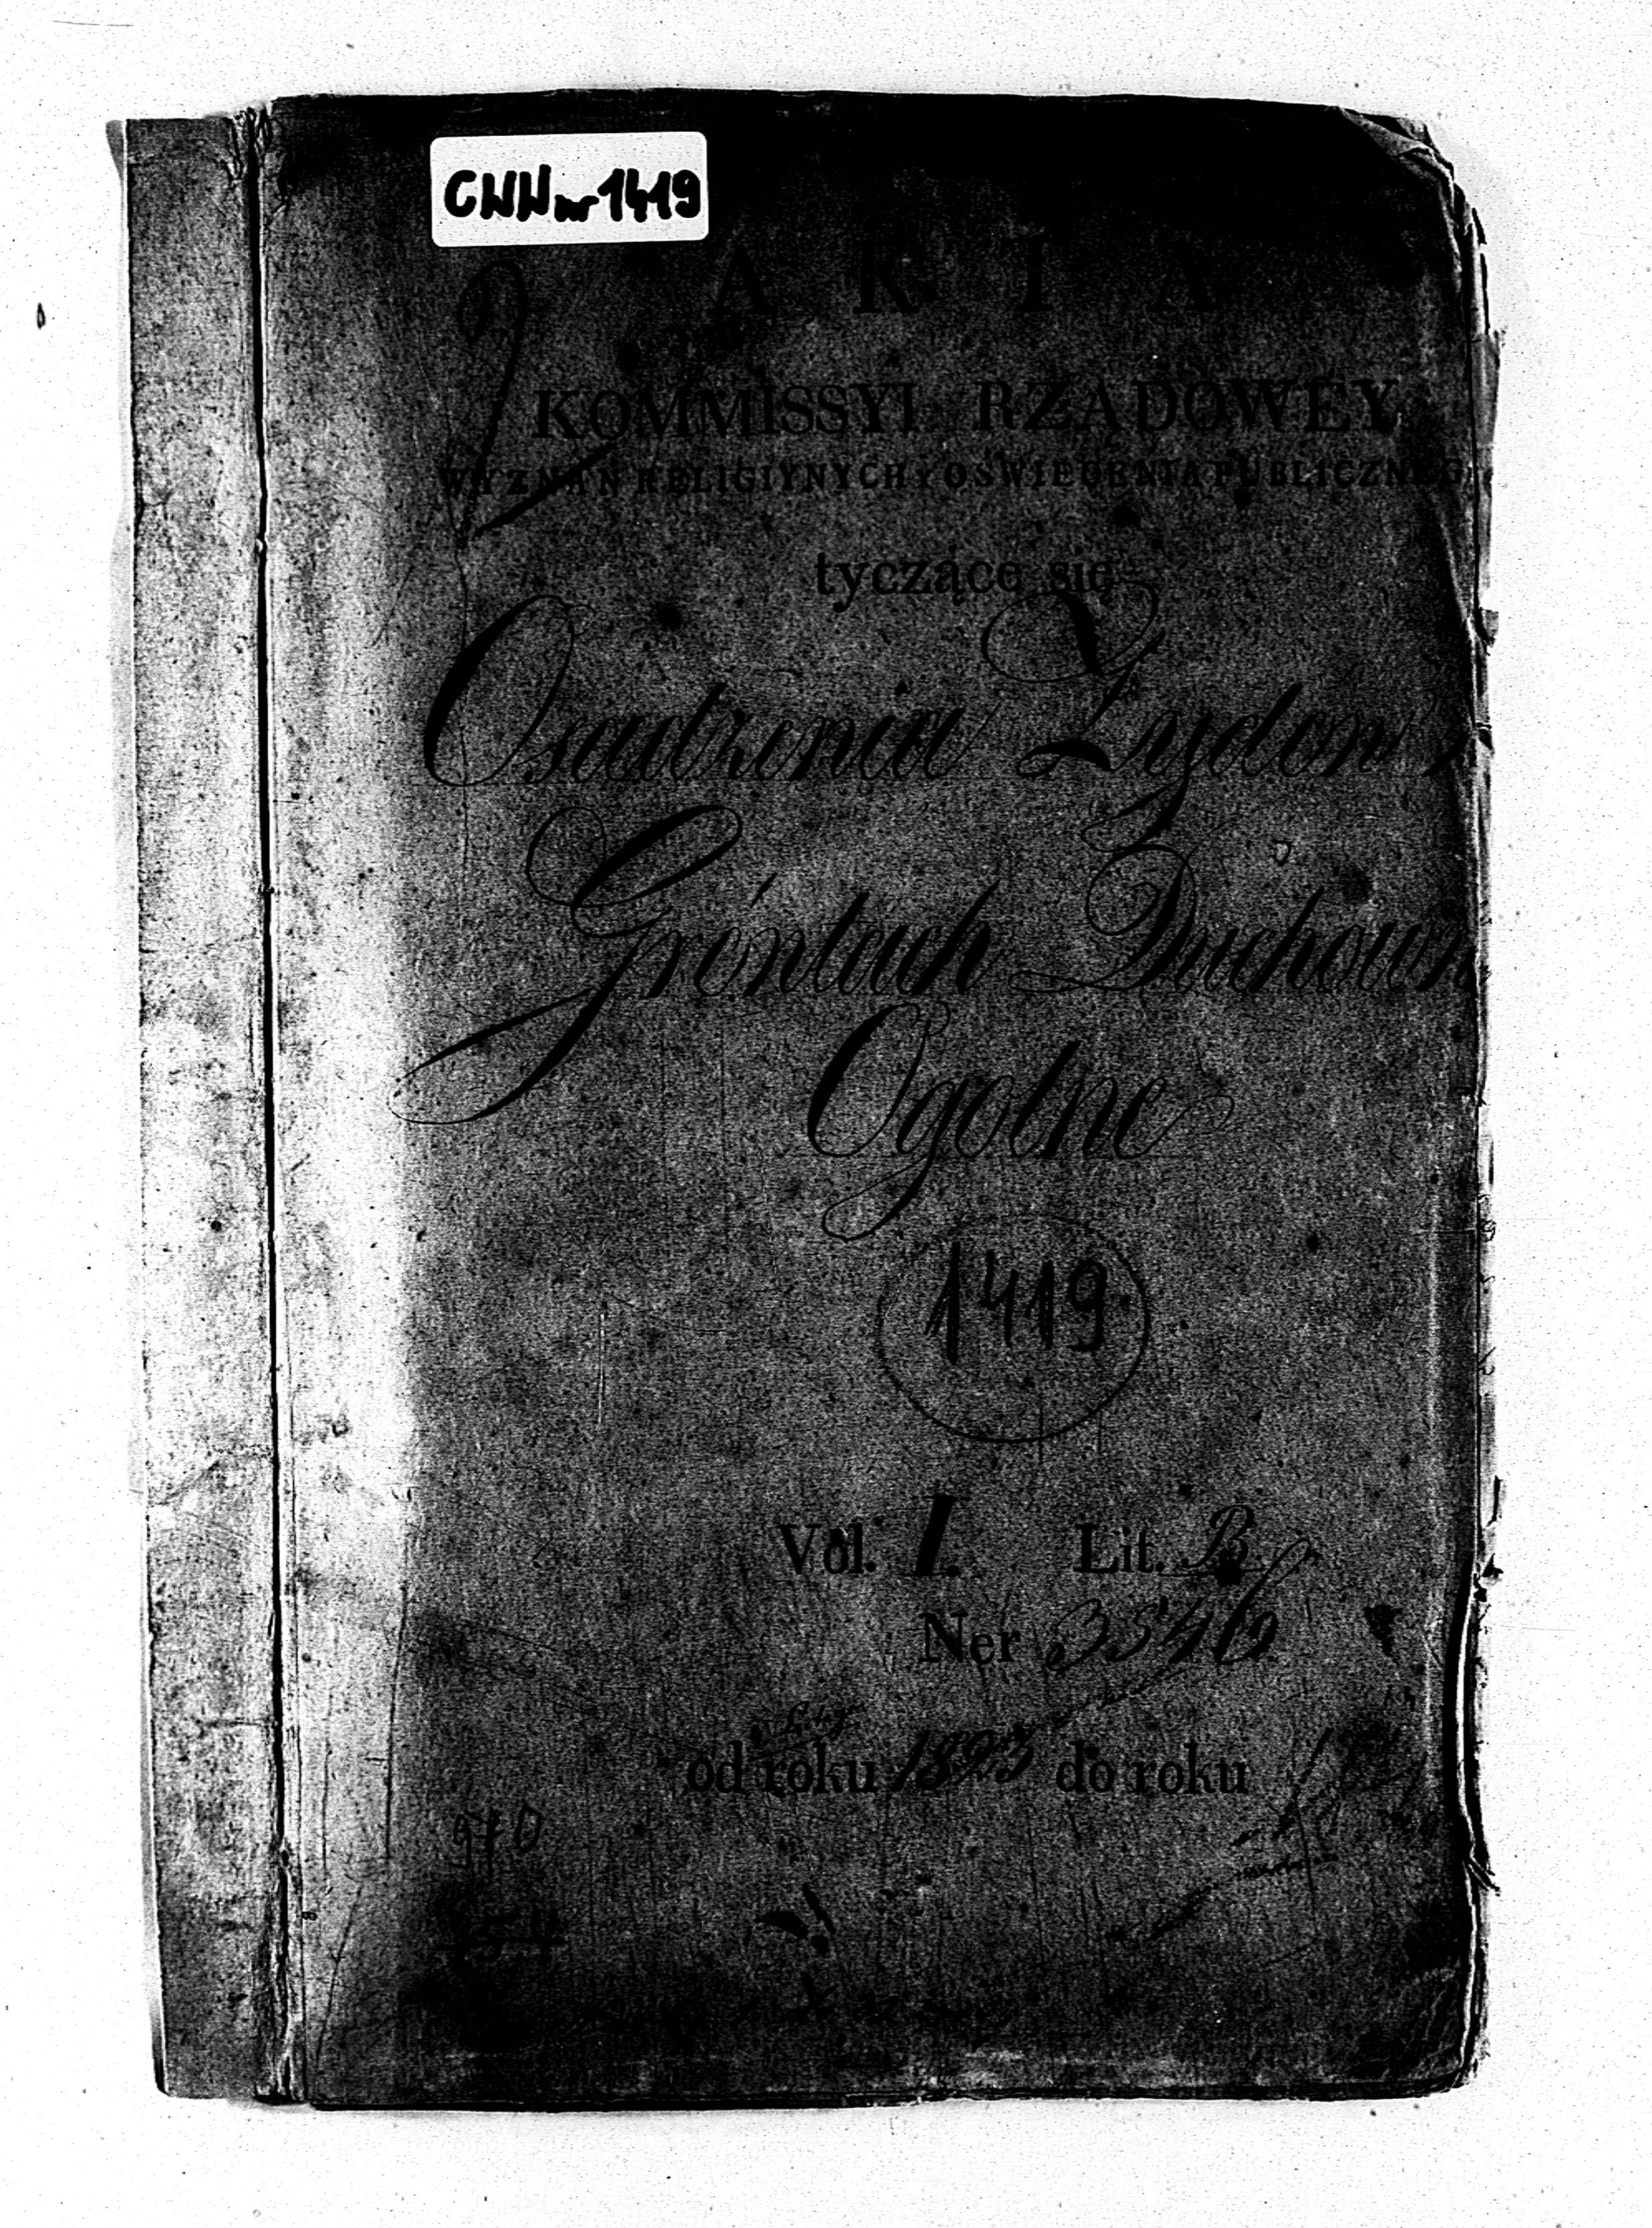 CWW nr 1419
AKTA
KOMMISSYI RZĄDOWEY
WYZNAN RELIGIYNYCH Y OSWIECENIA PUBLICZNEG
tyczące się
Osadzenia Żydów
Gróntach Duchown
Ogolne
1419
Vol. I. Lit. B.
Ner 3546
od roku 1823 do roku
970